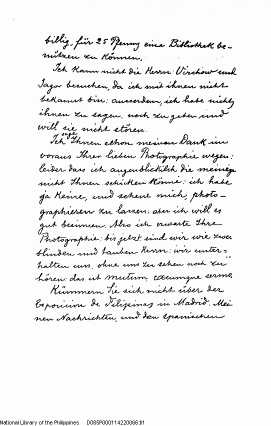 billig, für 25 Pfennig eine Bibliothek be-
nützen zu können.
Ich kann nicht die Herrn Virchow und
Jagor besuchen, da ich mit ihnen nicht
bekannt bin: ausserdem, ich habe nichts
ihnen zu sagen, noch zu geben und
will sie nicht stören.
Ich sage Ihnen schon meinen Dank im
voraus Ihrer lieben Photographie wegen:
leider dass ich augenblicklich die meinige
nicht Ihnen schicken könne: ich habe
ja keine, und scheue mich, photo-
graphieren zu lassen: aber ich will es
gut besinnen. Also ich erwarte Ihre
Photographie: bis jetzt sind wir wie zwei
blinden und tauben Herrn: wir unter-
halten uns, ohne uns zu sehen noch zu
hören: das ist mutum caecumque sermo.
Kümmern Sie sich nicht über der
Exposicion de Filipinas in Madrid. Mei-
nen Nachrichten, und den spanischen
National Library of the Philippines D085P80011422006б.tif